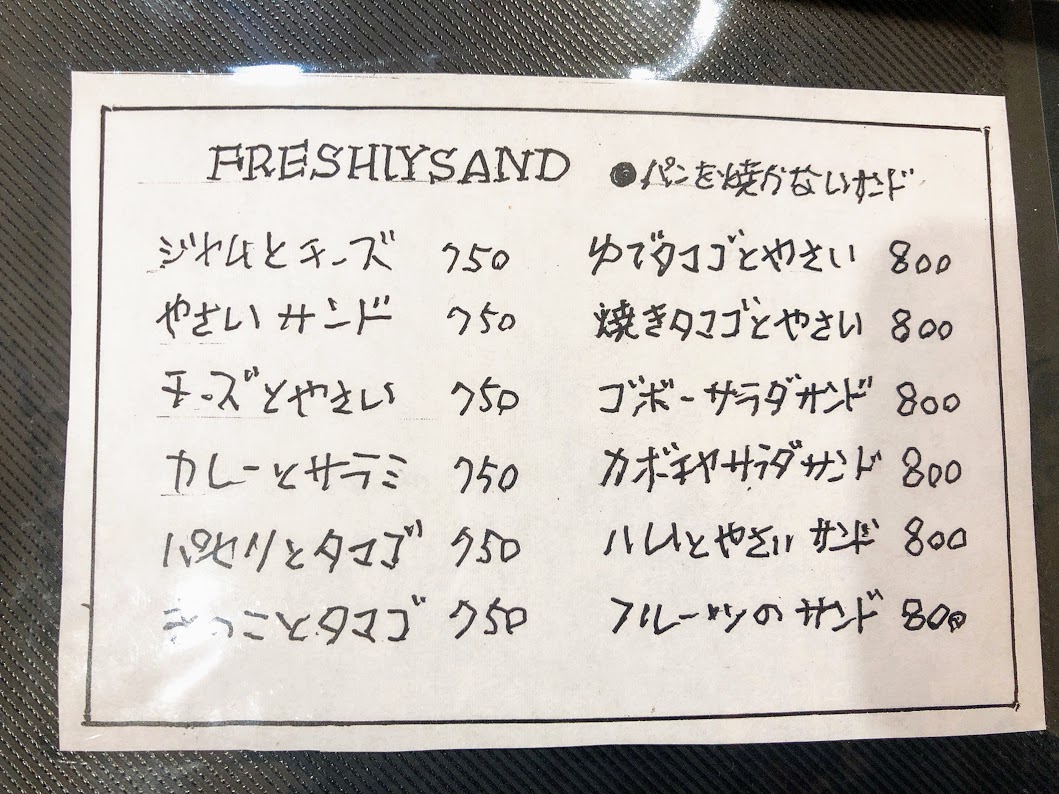 FRESHLYSAND ●パンを焼かないサンド
ジャムとチーズ 750
やさいサンド 750
チーズとやさい 750
カレーとサラミ 750
パセリとタマゴ 750
とタマゴ 750
ゆでタマゴとやさい 800
焼きタマゴとやさい 800
ゴボーサラダサンド 800
カボチャサラダサンド 800
ハムとやさいサンド 800
フルーツのサンド 800